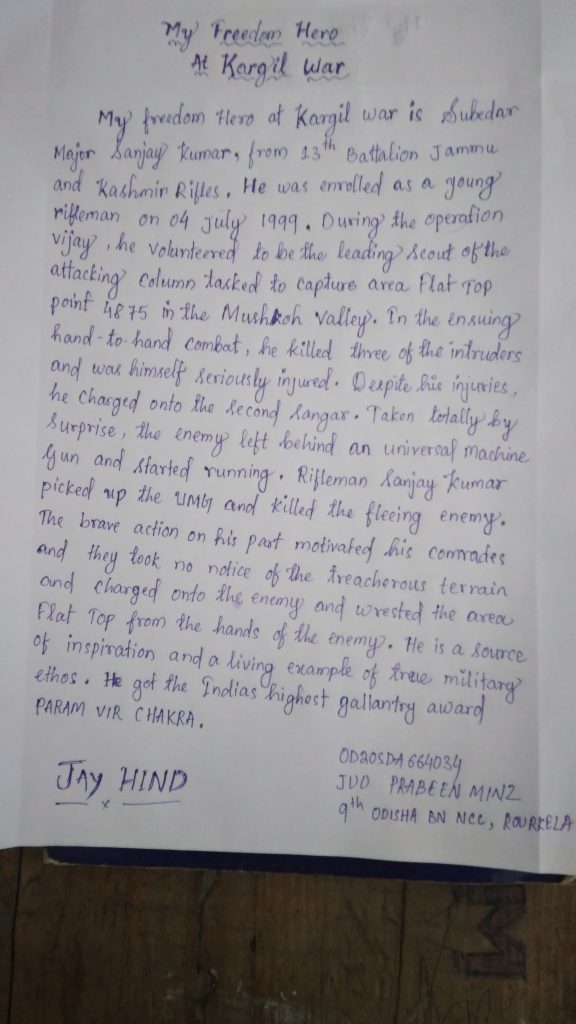 My Freedom Hero
At Kargil War
My freedom Hero at Kargil war is Subedar
Major Sanjay Kumar, from 13th Battalion Jammu
and Kashmir Rifles. He was enrolled as a young
rifleman on 04 July 1999. During the operation
vijay, he volunteered to be the leading scout of the
attacking column tasked to capture area Flat Top
point 4875 in the Mushkoh Valley. In the ensuing
hand-to-hand combat, he killed three of the intruders
and was himself seriously injured. Despite his injuries,
he charged onto the second sangar. Taken totally by
surprise, the enemy left behind an universal machine
Gun and started running. Rifleman Sanjay Kumar
picked up the UMG and killed the fleeing enemy.
The brave action on his part motivated his comrades
and they took no notice of the treacherous terrain
and charged onto the enemy and wrested the area
Flat Top from the hands of the enemy. He is a source
of inspiration and a living example of true military
ethos. He got the Indias highest gallantry award
PARAM VIR CHAKRA.
JAY HIND
OD20SDA664034
JUO PRABEEN MINZ
9th ODISHA BN NCC, ROURKELA